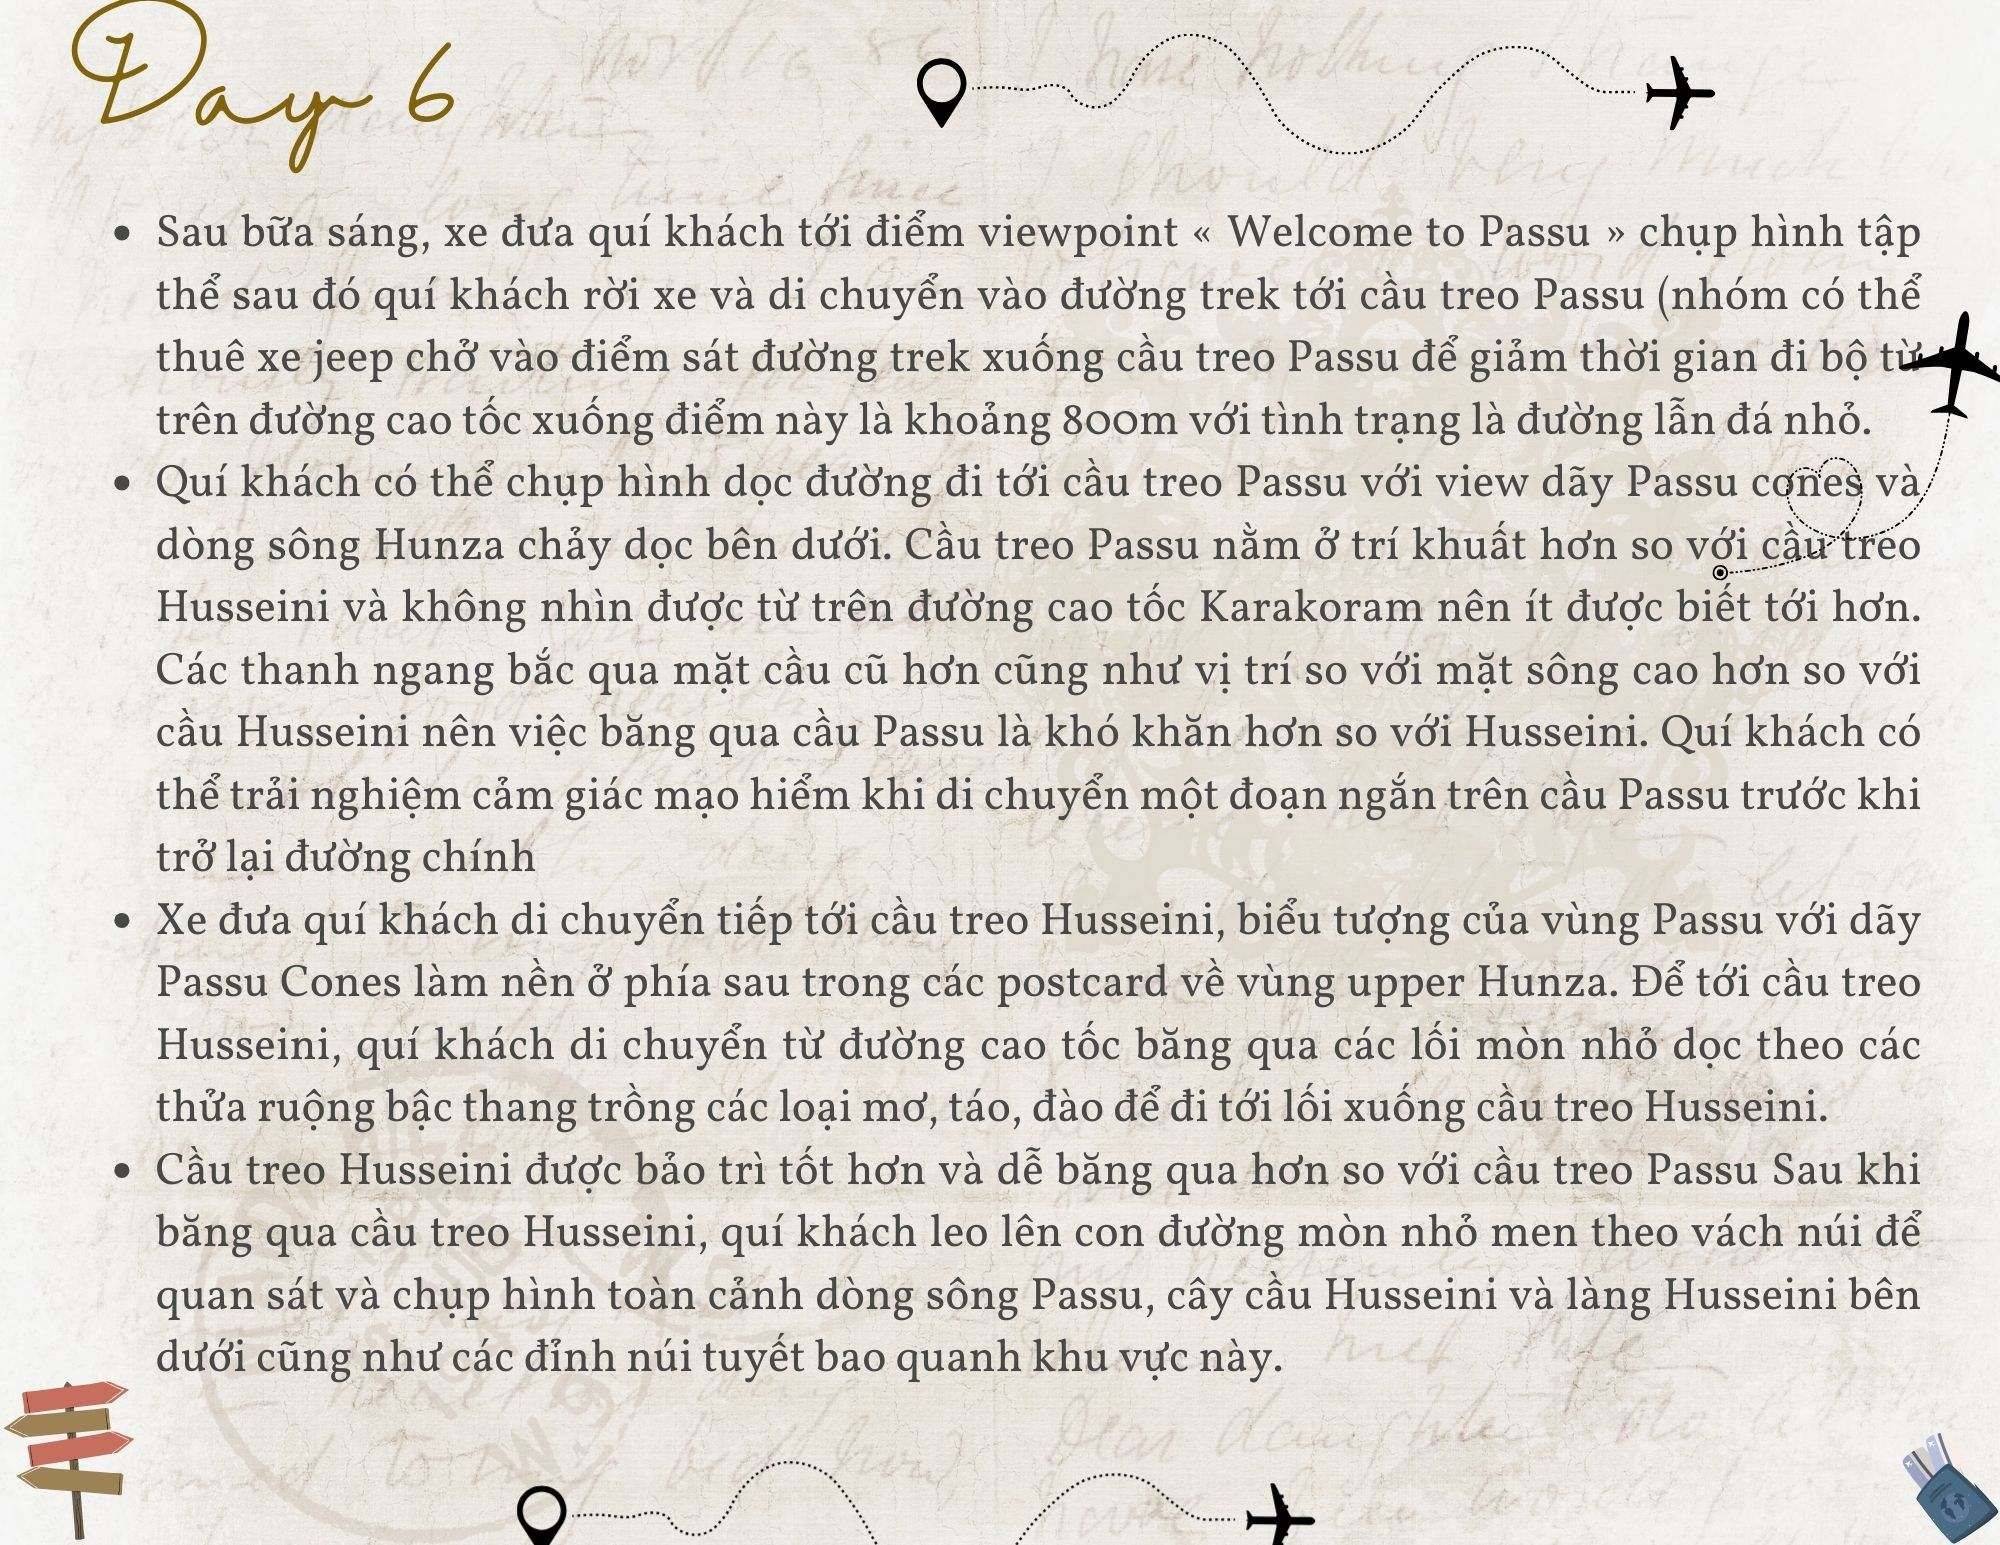 Day 6
• Sau bữa sáng, xe đưa quí khách tới điểm viewpoint « Welcome to Passu » chụp hình tập
thể sau đó quí khách rời xe và di chuyển vào đường trek tới cầu treo Passu (nhóm có thể
thuê xe jeep chở vào điểm sát đường trek xuống cầu treo Passu để giảm thời gian đi bộ từ
trên đường cao tốc xuống điểm này là khoảng 800m với tình trạng là đường lẫn đá nhỏ.
• Quí khách có thể chụp hình dọc đường đi tới cầu treo Passu với view dãy Passu cones và
dòng sông Hunza chảy dọc bên dưới. Cầu treo Passu nằm ở trí khuất hơn so với cầu treo
Husseini và không nhìn được từ trên đường cao tốc Karakoram nên ít được biết tới hơn.
Các thanh ngang bắc qua mặt cầu cũ hơn cũng như vị trí so với mặt sông cao hơn so với
cầu Husseini nên việc băng qua cầu Passu là khó khăn hơn so với Husseini. Quí khách có
thể trải nghiệm cảm giác mạo hiểm khi di chuyển một đoạn ngắn trên cầu Passu trước khi
trở lại đường chính
• Xe đưa quí khách di chuyển tiếp tới cầu treo Husseini, biểu tượng của vùng Passu với dãy
Passu Cones làm nền ở phía sau trong các postcard về vùng upper Hunza. Để tới cầu treo
Husseini, quí khách di chuyển từ đường cao tốc băng qua các lối mòn nhỏ dọc theo các
thửa ruộng bậc thang trồng các loại mơ, táo, đào để đi tới lối xuống cầu treo Husseini.
• Cầu treo Husseini được bảo trì tốt hơn và dễ băng qua hơn so với cầu treo Passu Sau khi
băng qua cầu treo Husseini, quí khách leo lên con đường mòn nhỏ men theo vách núi để
quan sát và chụp hình toàn cảnh dòng sông Passu, cây cầu Husseini và làng Husseini bên
dưới cũng như các đỉnh núi tuyết bao quanh khu vực này.